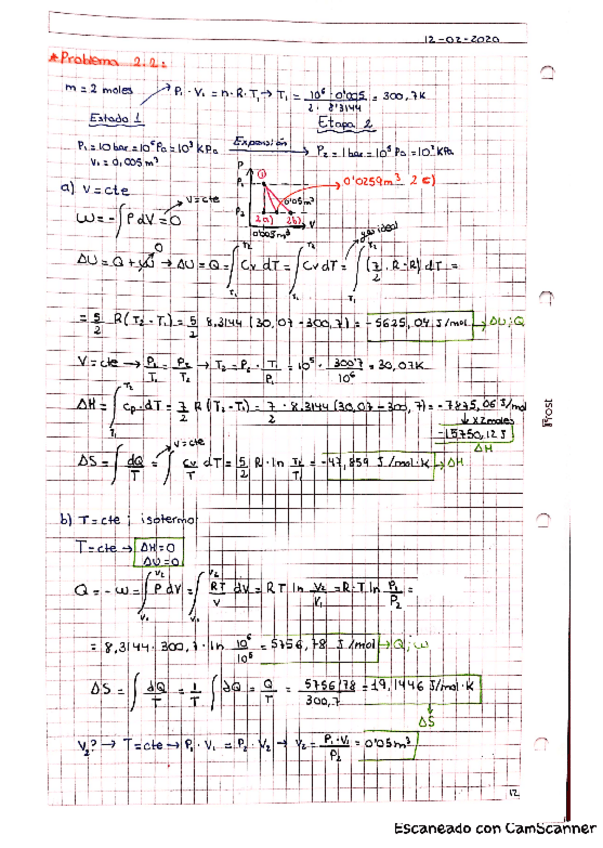 12-02-2020
*Problema 2.2:
m = 2 moles → P₁·V₁ = n·R·T₁ → T₁ = 10⁶·0'005 / 2·8'3144 = 300,7K
Estado 1
Etapa 2
P₁ = 10 bar = 10⁶ Pa = 10³ KPa Expansión → P₂ = 1 bar = 10⁵ Pa = 10² KPa
V₁ = 0,005 m³
P
P₁
P₂
①
0'05m³
2a) 2b) V
0'005m³
0'0259m³ 2c)
a) V = cte
W = -∫PdV = 0
V = cte
ΔU = Q + W 0 → ΔU = Q = ∫T₁T₂ Cv dT = ∫T₁T₂ Cv dT = ∫T₁T₂ (7/2 · R - R) dT =
gas ideal
= 5/2 R(T₂ - T₁) = 5/2 8,3144 (30,07 - 300,7) = -5625,04 J/mol → ΔU; Q
V = cte → P₁/T₁ = P₂/T₂ → T₂ = P₂ · T₁/P₁ = 10⁵ · 300'7/10⁶ = 30,07K
ΔH = ∫T₁T₂ Cp·dT = 7/2 R(T₂ - T₁) = 7/2 · 8.3144 (30,07 - 300,7) = -7875,06 J/mol
↓ x2moles
-15750,12 J
ΔH
ΔS = ∫dQ/T = ∫Cv/T dT = 5/2 R·ln T₂/T₁ = -47,859 J/mol·K → ΔH
V = cte
b) T = cte; isotermo
T = cte → ΔH = 0
ΔU = 0
Q = -W = ∫V₁V₂ P dV = ∫V₁V₂ RT/V dV = RT ln V₂/V₁ = R·T ln P₁/P₂ =
= 8,3144·300,7·ln 10⁶/10⁵ = 5756,78 J/mol → Q; W
ΔS = ∫dQ/T = 1/T ∫dQ = Q/T = 5756'78/300,7 = 19,1446 J/mol·K
ΔS
V₂? → T = cte → P₁·V₁ = P₂·V₂ → V₂ = P₁·V₁/P₂ = 0'05m³
Frost
12
Escaneado con CamScanner